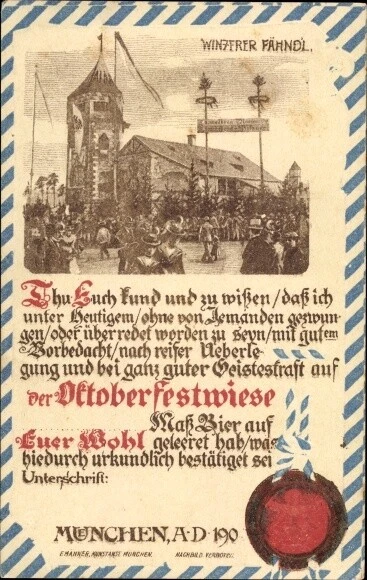 WINZERER FÄHNDL.
Thu Euch kund und zu wißen/daß ich
unter Heutigem/ohne von Jemanden gezwun-
gen/oder überredet worden zu seyn/mit gutem
Vorbedacht/nach reifer Ueberle-
gung und bei ganz guter Geisteskraft auf
der Oktoberfestwiese
Maß Bier auf
Euer Wohl geleeret hab/was
hiedurch urkundlich bestätiget sei
Unterschrift:
MUENCHEN, A·D·190
NACHBILD. VERBOTEN.